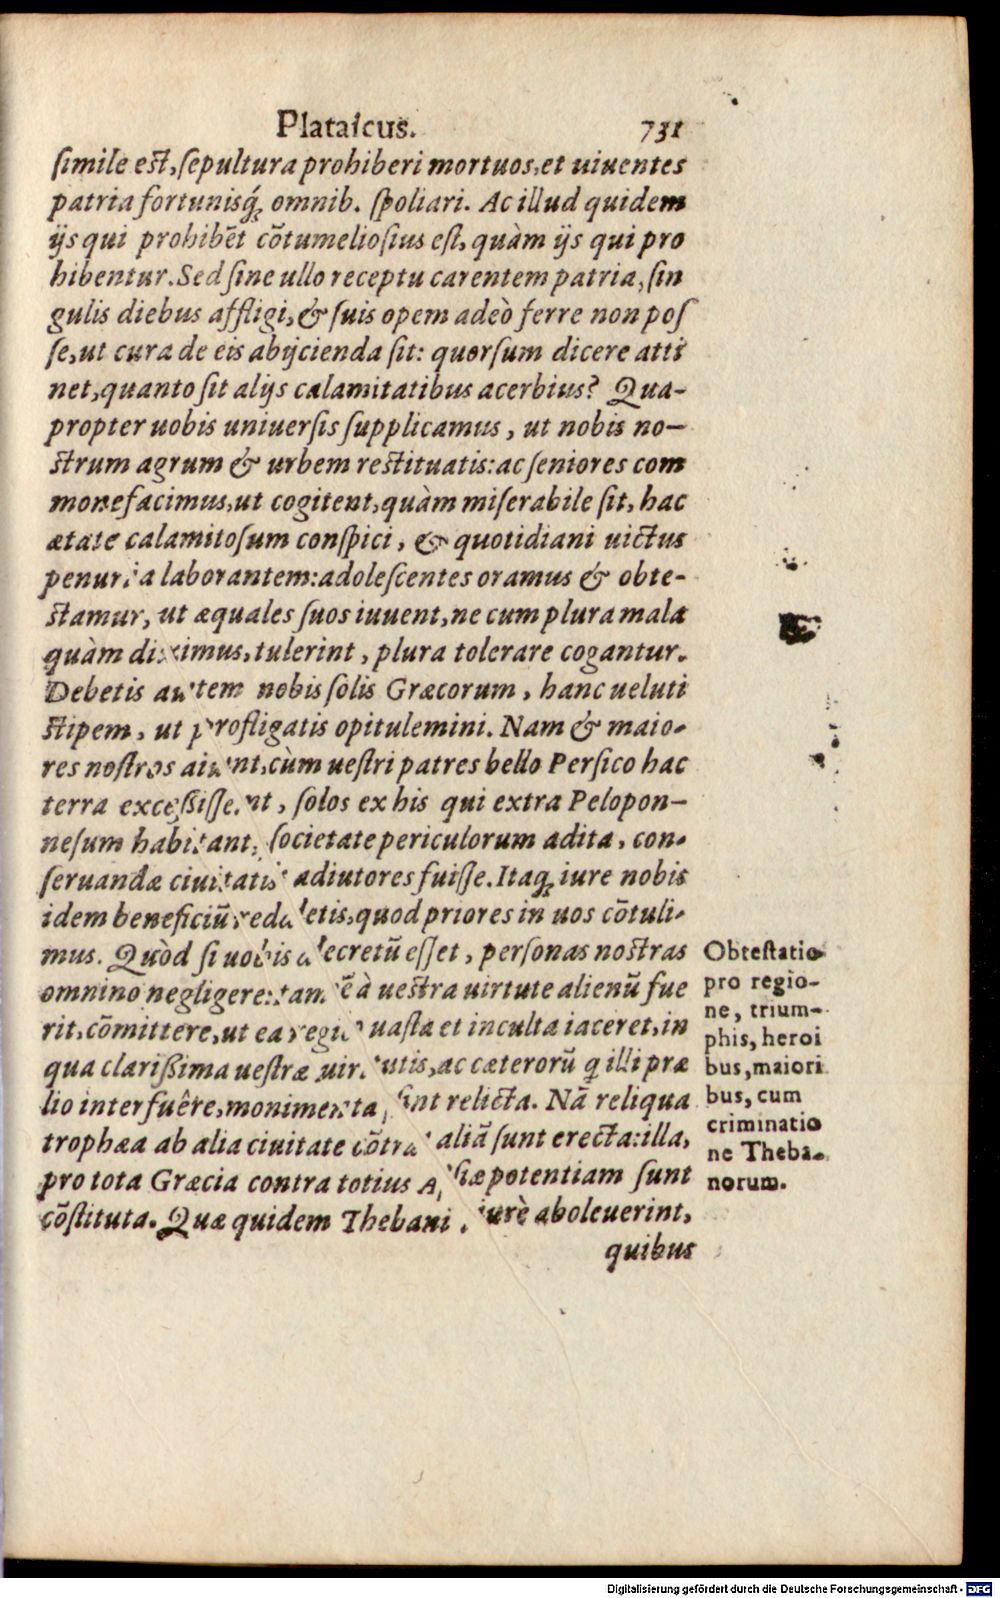 Plataicus. 731
ſimile est, ſepultura prohiberi mortuos, et uiuentes
patria fortunisq́ꝫ omnib. ſpoliari. Ac illud quidem
ijs qui prohibẽt cõtumelioſius eſt, quàm ijs qui pro
hibentur. Sed ſine ullo receptu carentem patria, ſin
gulis diebus affligi, & ſuis opem adeò ferre non poſ
ſe, ut cura de eis abijcienda ſit: quorſum dicere atti
net, quanto ſit alijs calamitatibus acerbius? Qua-
propter uobis uniuerſis ſupplicamus, ut nobis no-
strum agrum & urbem restituatis: ac ſeniores com
monefacimus, ut cogitent, quàm miſerabile ſit, hac
ætate calamitoſum conſpici, & quotidiani uictus
penuria laborantem: adoleſcentes oramus & obte-
stamur, ut æquales ſuos iuuent, ne cum plura mala
quàm diximus, tulerint, plura tolerare cogantur.
Debetis autem nobis ſolis Græcorum, hanc ueluti
stipem, ut profligatis opitulemini. Nam & maio-
res nostros aiunt, cùm uestri patres bello Perſico hac
terra exceßiſſent, ſolos ex his qui extra Pelopon-
neſum habitant, ſocietate periculorum adita, con-
ſeruandæ ciuitatis adiutores fuiſſe. Itaqꝫ iure nobis
idem beneficiũ reddetis, quod priores in uos cõtuli-
mus. Quòd ſi uobis decretũ eſſet, perſonas nostras
omnino negligere: tamẽ à uestra uirtute alienũ fue
rit, cõmittere, ut ea regio uasta et inculta iaceret, in
qua clarißima uestræ uirtutis, ac cæterorũ q̃ illi præ
lio interfuêre, monimenta ſint relicta. Nã reliqua
trophæa ab alia ciuitate cõtra aliã ſunt erecta: illa,
pro tota Græcia contra totius Aſiæ potentiam ſunt
cõſtituta. Quæ quidem Thebani iurè aboleuerint,
quibus
Obteſtatio
pro regio-
ne, trium-
phis, heroi
bus, maiori
bus, cum
criminatio
ne Theba-
norum.
Digitalisierung gefördert durch die Deutsche Forschungsgemeinschaft - DFG